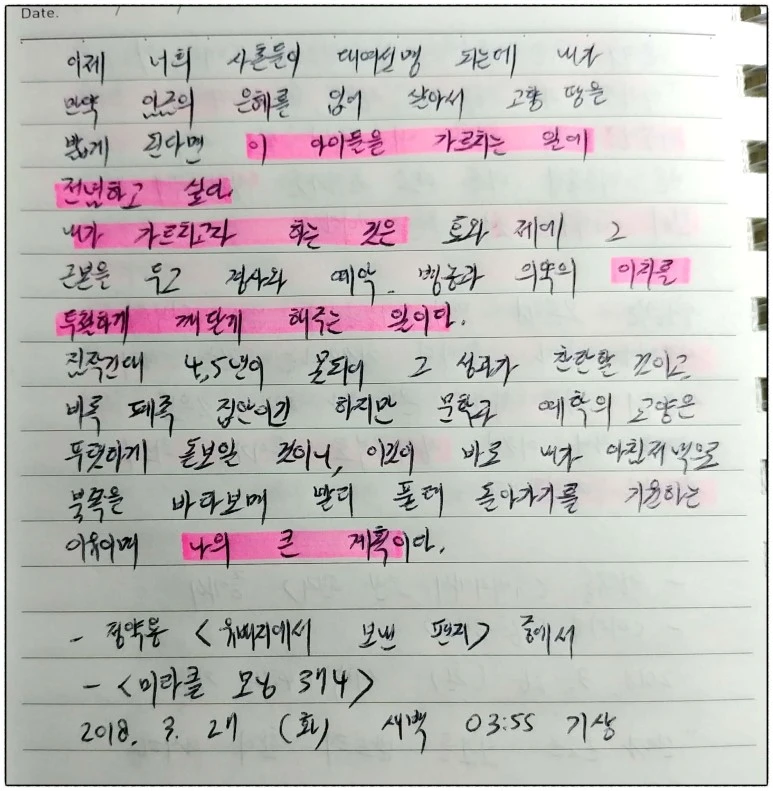 Date.
이제 너희 사촌들이 대여섯명 되는데 내가
만약 임금의 은혜를 입어 살아서 고향 땅을
밟게 된다면 이 아이들을 가르치는 일에
전념하고 싶다.
내가 가르치고자 하는 것은 효와 제에 그
근본을 두고 경사와 예악, 병농과 의약의 이치를
투철하게 깨닫게 해주는 일이다.
짐작컨대 4,5년이 못되어 그 성과가 찬란할 것이고
비록 폐족 집안이긴 하지만 문학과 예학의 교양은
푸덧하게 돋보일 것이니, 이것이 바로 내가 아침저녁으로
북쪽을 바라보며 빨리 풀려 돌아가기를 기원하는
이유이며 나의 큰 계획이다.
- 정약용 <유배지에서 보낸 편지> 중에서
- <미라클 모닝 374>
2018. 3. 27 (화) 새벽 03:55 기상